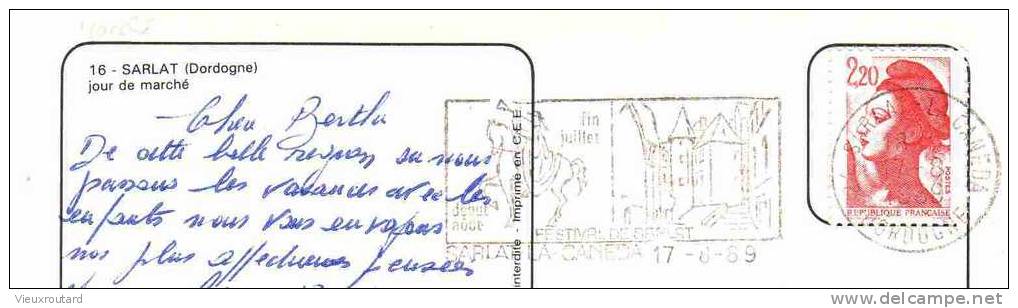 16 - SARLAT (Dordogne)
jour de marché
Cher Berthe
De cette belle region ou nous
passons les vacances avec les
enfants nous vous envoyons
nos plus affectueuses pensées
Imprimé en C.E.E.
interdite
fin
juillet
début
août
FESTIVAL DE
SARLAT-LA-CANEDA 17 -8-89
2,20
POSTES
REPUBLIQUE FRANÇAISE
SARLAT LA CANEDA
DORDOGNE
Vieuxroutard
delcampe.net